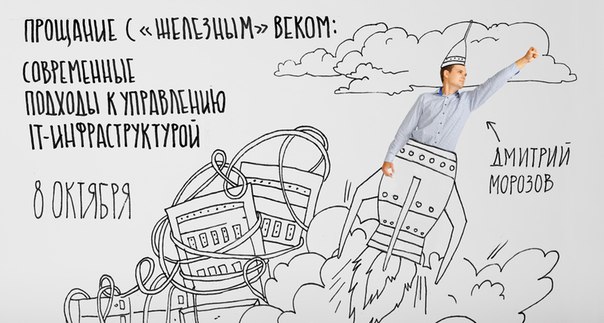 ПРОЩАНИЕ С «ЖЕЛЕЗНЫМ» ВЕКОМ:
СОВРЕМЕННЫЕ
ПОДХОДЫ К УПРАВЛЕНИЮ
IT-ИНФРАСТРУКТУРОЙ
8 ОКТЯБРЯ
ДМИТРИЙ
МОРОЗОВ